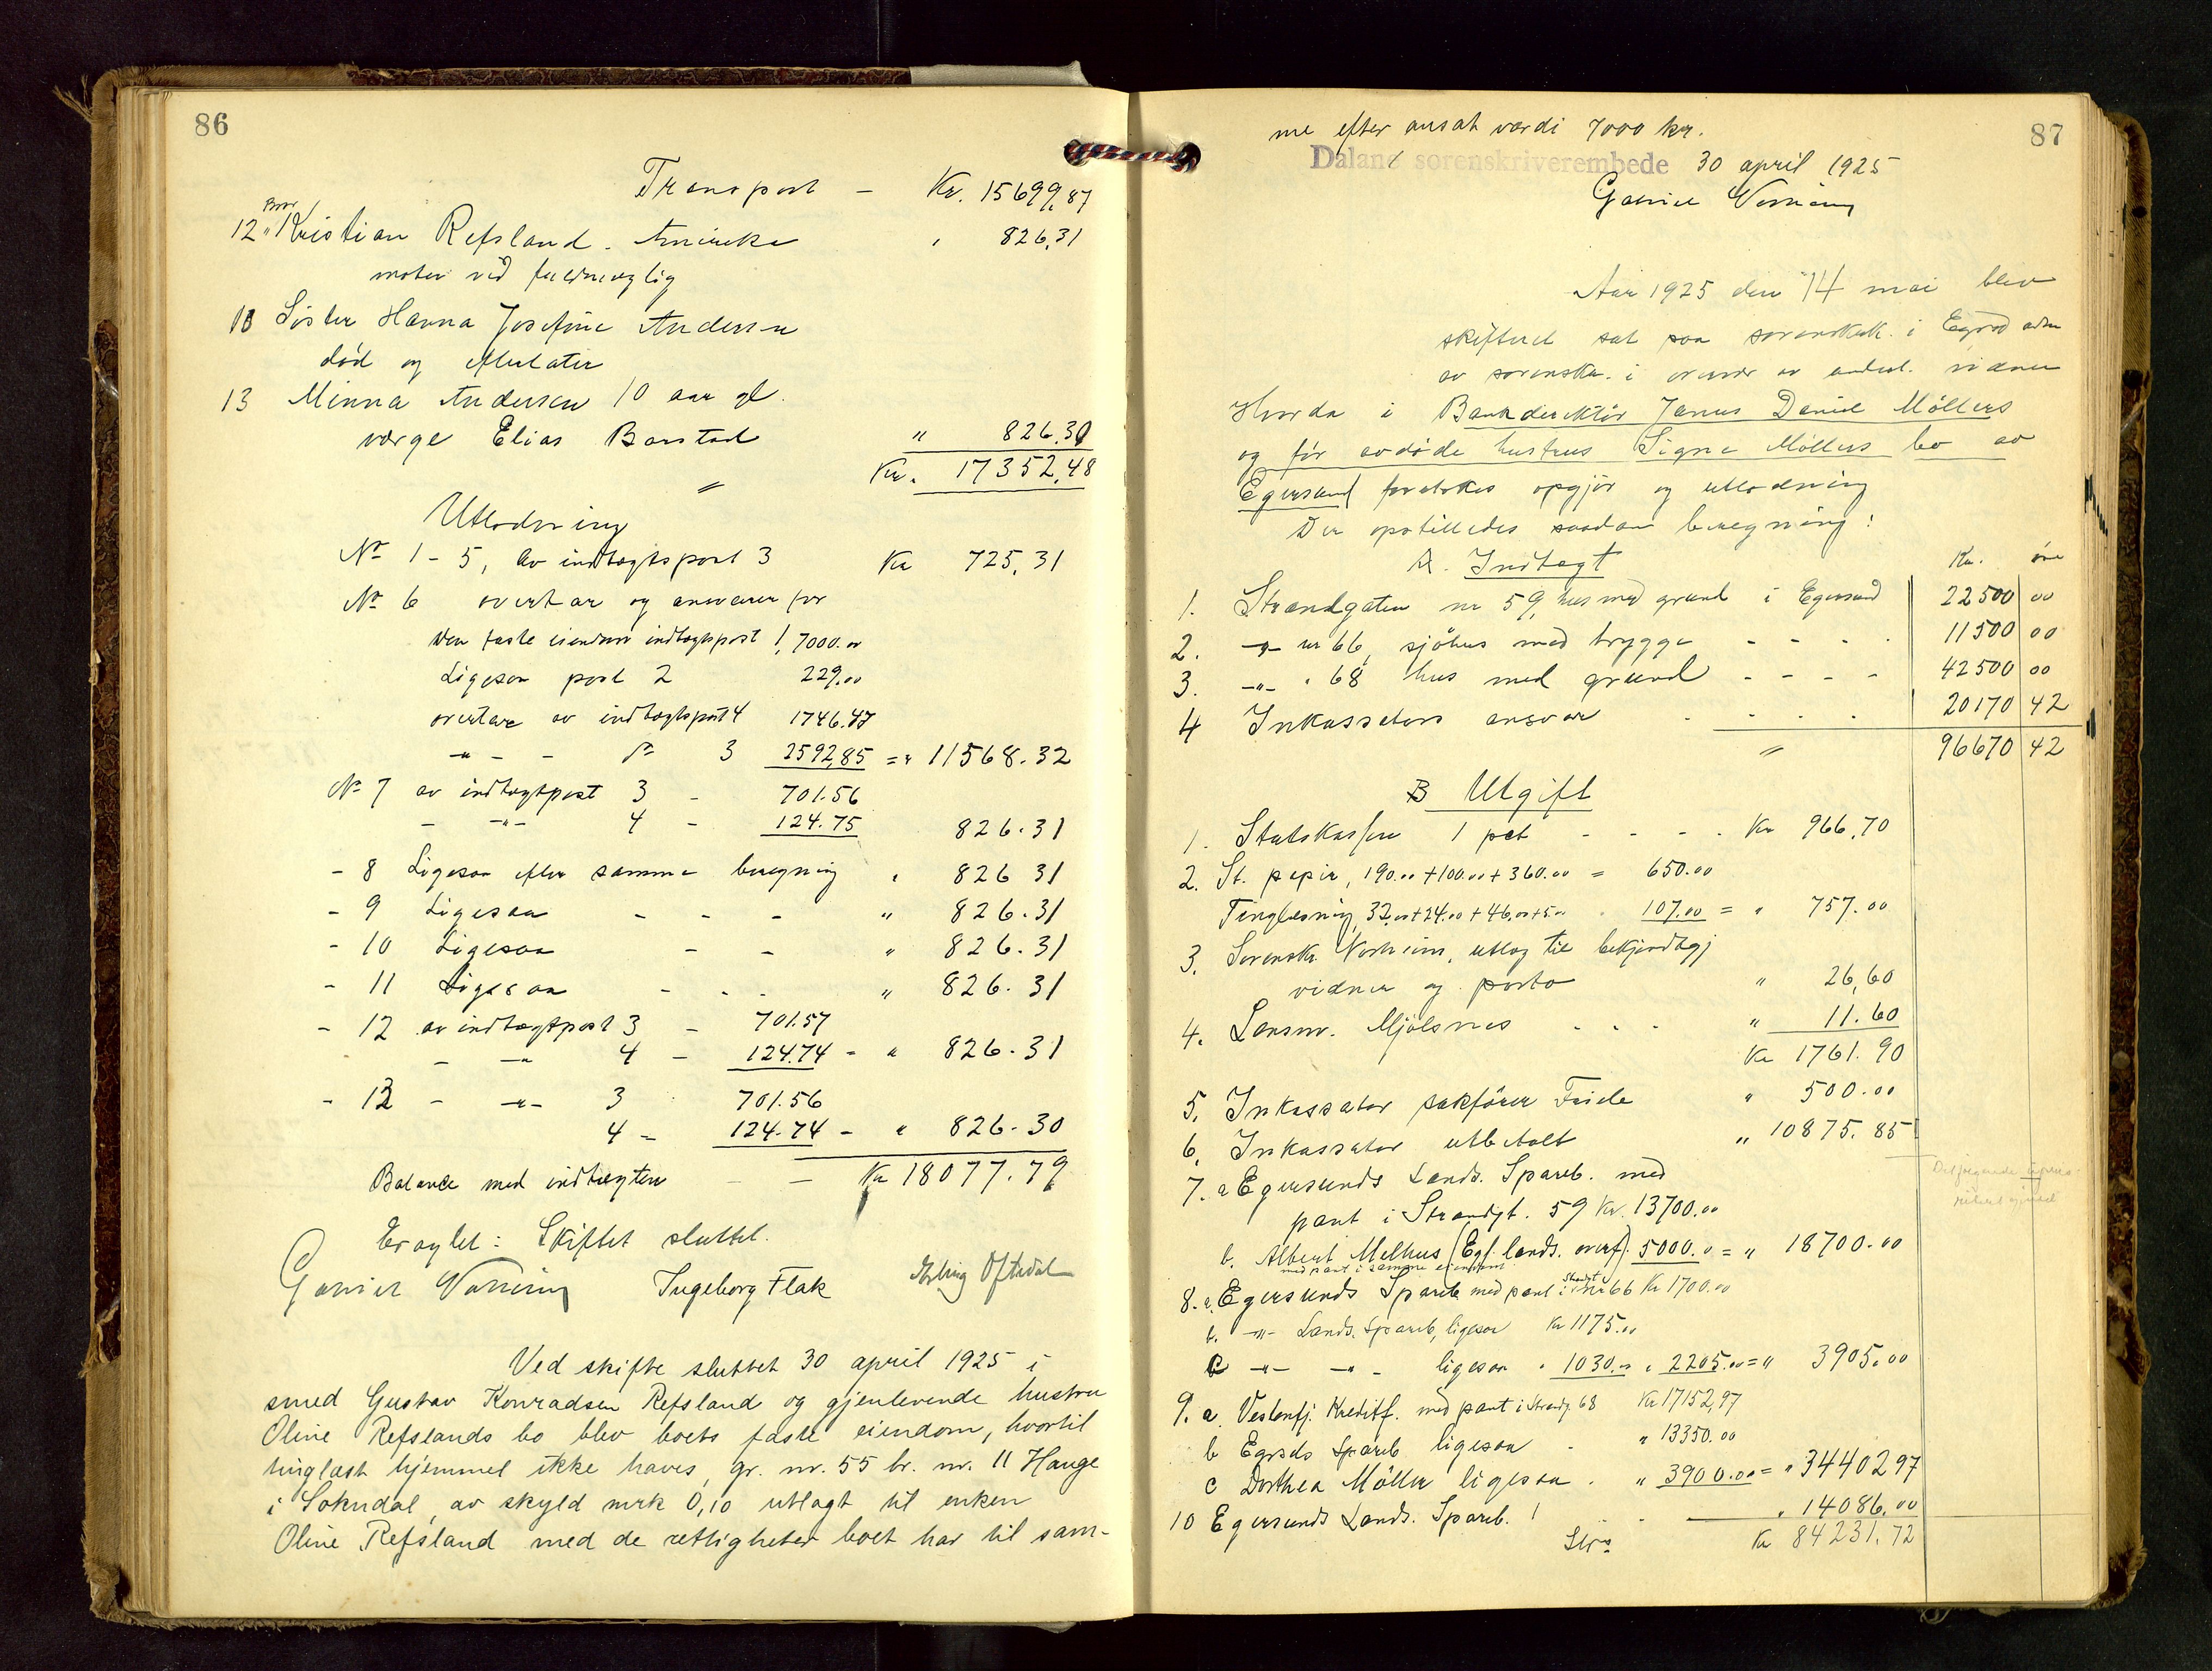 86
Transport - Kr. 15699,87
Bror
12 " Kristian Refsland. Amerika " 826,31
møter ved fuldmægtig
13 Søster Hanna Josefine Andersen
død og efterlater
13 Minna Andersen 10 aar gl.
værge Elias Barstad " 826.30
Kr. 17352,48
Utlodning
No 1 - 5, av indtægtspost 3 Kr 725,31
No 6 overtar og ansvarer for
den faste eiendom indtægtspost 1, 7000.00
Ligesaa post 2 229.00
overtar av indtægtspost 4 1746.47
-"- - " 3 2592,85 = " 11568.32
No 7 av indtægtpost 3 - 701.56
- -"- 4 - 124.75 826.31
- 8 Ligesaa efter samme beregning " 826 31
- 9 Ligesaa - - - " 826.31
- 10 Ligesaa - - " 826.31
- 11 Ligesaa - - - " 826.31
- 12 av indtægtpost 3 - 701.57
- -"- 4 - 124.74 - " 826.31
- 13 - -"- 3 701.56
4 - 124.74 - " 826.30
Balance med indtægten - - Kr 18077.79
Eragtet: Skiftet sluttet.
Gabriel Ingeborg Flak Erling Oftedal
Ved skifte sluttet 30 april 1925 i
smed Gustav Konradsen Refsland og gjenlevende hustru
Oline Refslands bo blev boets faste eiendom, hvortil
tinglæst hjemmel ikke haves, gr. nr. 55 br. nr. 11 Hauge
i Sokndal, av skyld mrk 0,10 utlagt til enken
Oline Refsland med de rettigheter boet har til sam-
87
me efter ansat værdi 7000 kr.
Dalane sorenskriverembede 30 april 1925
Gabriel
Aar 1925 den 14 mai blev
skifteret sat paa sorenskrk. i Egrsd
av sorenskr. i overvær av undert. vidner
Hvorda i Bankdirektør Janus Daniel Möllers
og før avdøde hustrus Signe Möllers bo av
Egersund foretokes opgjør og utlodning
Der opstilledes saadan beregning:
A. Indtægt Kr. øre
1. Strandgaten nr 59, hus med grund i Egersund 22500 00
2. -"- nr 66, sjöhus med brygge - - - - 11500 00
3. -"- " 68 hus med grund - - - - 42500 00
4 Inkassators ansvar - - - - 20170 42
96670 42
B Utgift
1. Statskassen 1 pct - - - - Kr 966,70
2. St. papir, 190.00 + 100.00 + 360.00 = 650.00
Tinglæsning 32.00 + 24.00 + 46.00 + 5.00 " 107.00 = " 757.00
3. Sorenskr. utlæg til bekjendtgj
vidner og porto " 26,60
4. Lensm. Mjölsnes - - - " 11.60
Kr 1761.90
5. Inkassator sakförer " 500.00
6. Inkassator utbetalt " 10875.85
7. a Egersunds Lands. Spareb. med
pant i Strandgt. 59 Kr. 13700.00
b. Albert Melhus (Egs. lands. overf). 5000.00 = " 18700.00
med pant i samme eiendom
8. a. Egersunds Spareb. med pant i Strandgt nr 66 Kr 1700.00
b. -"- Lands. Spareb, ligesaa Kr 1175.00
c -"- -"- ligesaa " 1030.00 " 2205.00 = " 3905.00
9. a. Vestenfj. Kreditf. med pant i Strandg. 68 Kr 17152,97
b Egrsds Spareb ligesaa - " 13350.00
c Dorthea Möller ligesaa. " 3900.00 = " 34402 97
10 Egersunds Lands. Spareb. " 14086.00
Kr 84231.72